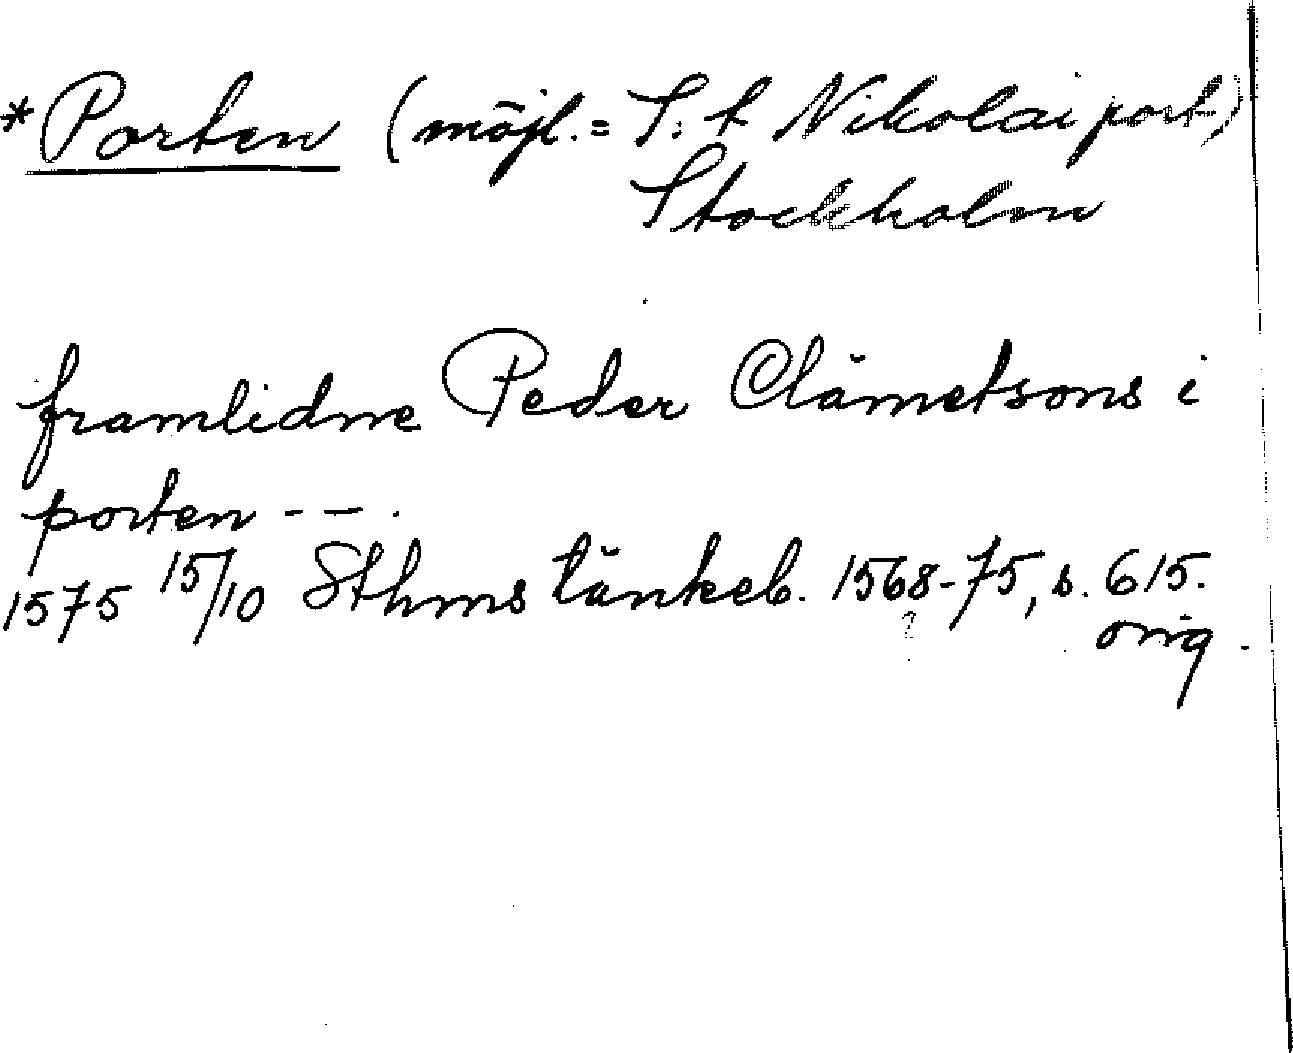 *Porten (möjl. = S:t Nikolai port,)
Stockholm
framlidne Peder Clämetsons i
porten - - .
1575 15/10 Sthms tänkeb. 1568-75, s. 615.
orig.